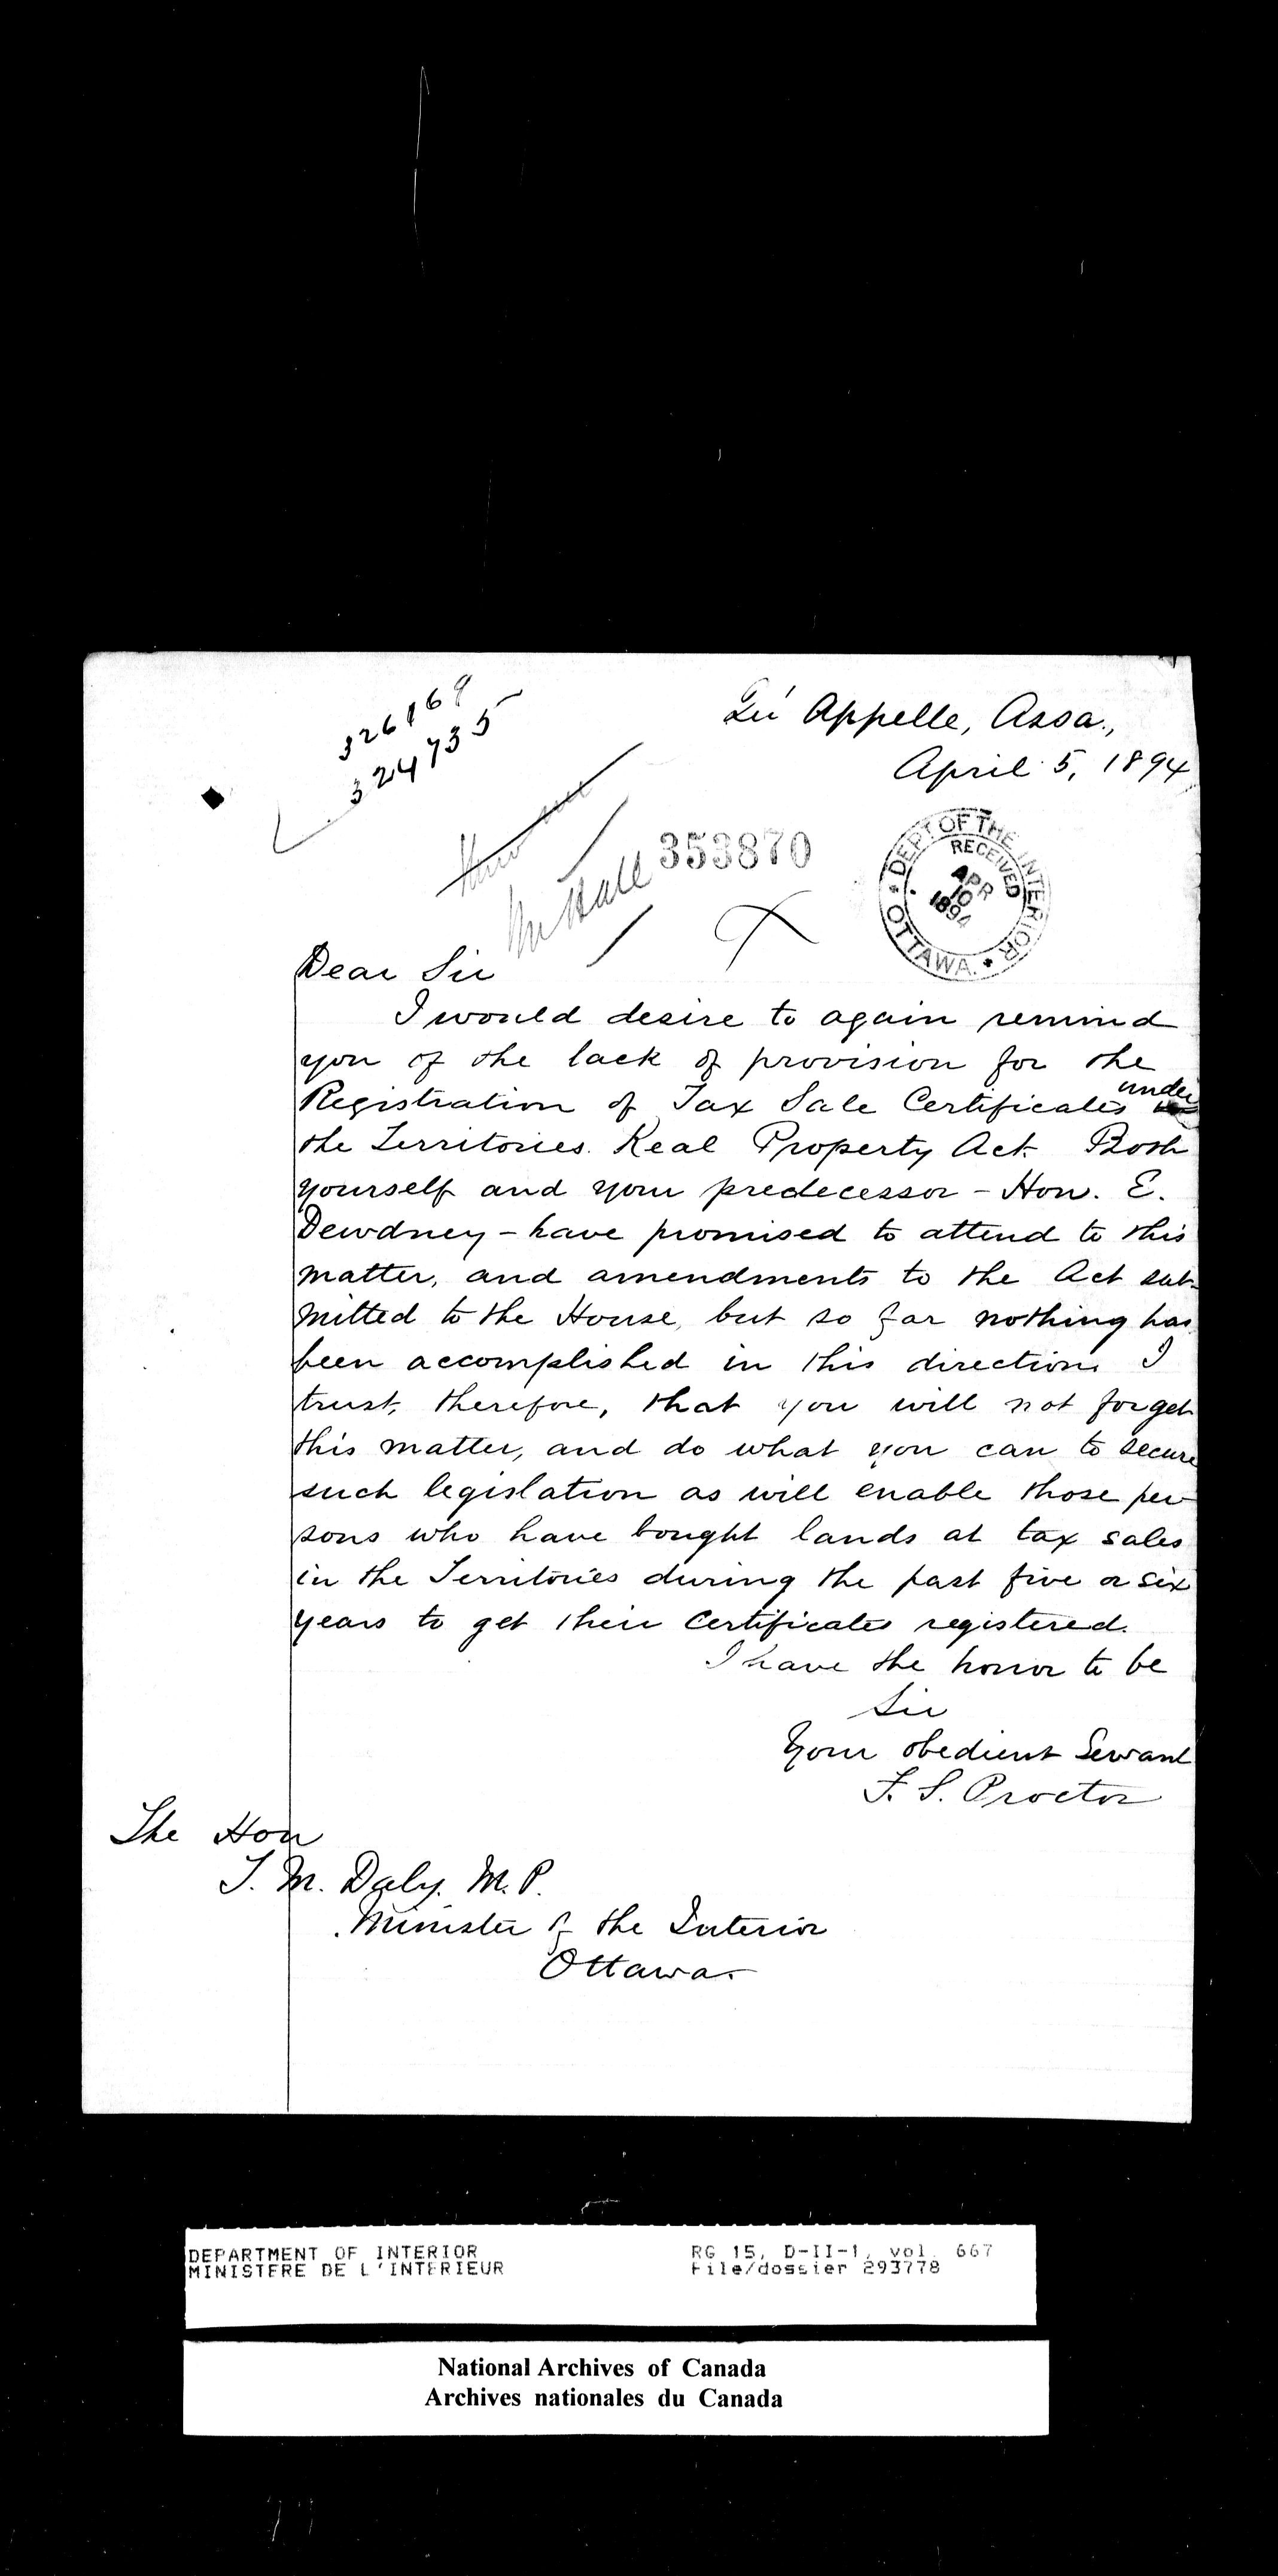 326169
324735
Qu'Appelle, Assa.,
April 5, 1894
Mr Hall
353870
DEPT OF THE INTERIOR
RECEIVED
APR
10
1894
OTTAWA.
Dear Sir
I would desire to again remind
you of the lack of provision for the
Registration of Tax Sale Certificates under
the Territories Real Property Act. Both
yourself and your predecessor - Hon. E.
Dewdney - have promised to attend to this
matter, and amendments to the Act sub-
mitted to the House, but so far nothing has
been accomplished in this direction. I
trust, therefore, that you will not forget
this matter, and do what you can to secure
such legislation as will enable those per-
sons who have bought lands at tax sales
in the Territories during the past five or six
years to get their Certificates registered.
I have the honor to be
Sir
Your obedient Servant
F. S. Proctor
The Hon
T. M. Daly. M.P.
Minister of the Interior
Ottawa.
DEPARTMENT OF INTERIOR
MINISTERE DE L'INTERIEUR
RG 15, D-II-1, vol. 667
File/dossier 293778
National Archives of Canada
Archives nationales du Canada